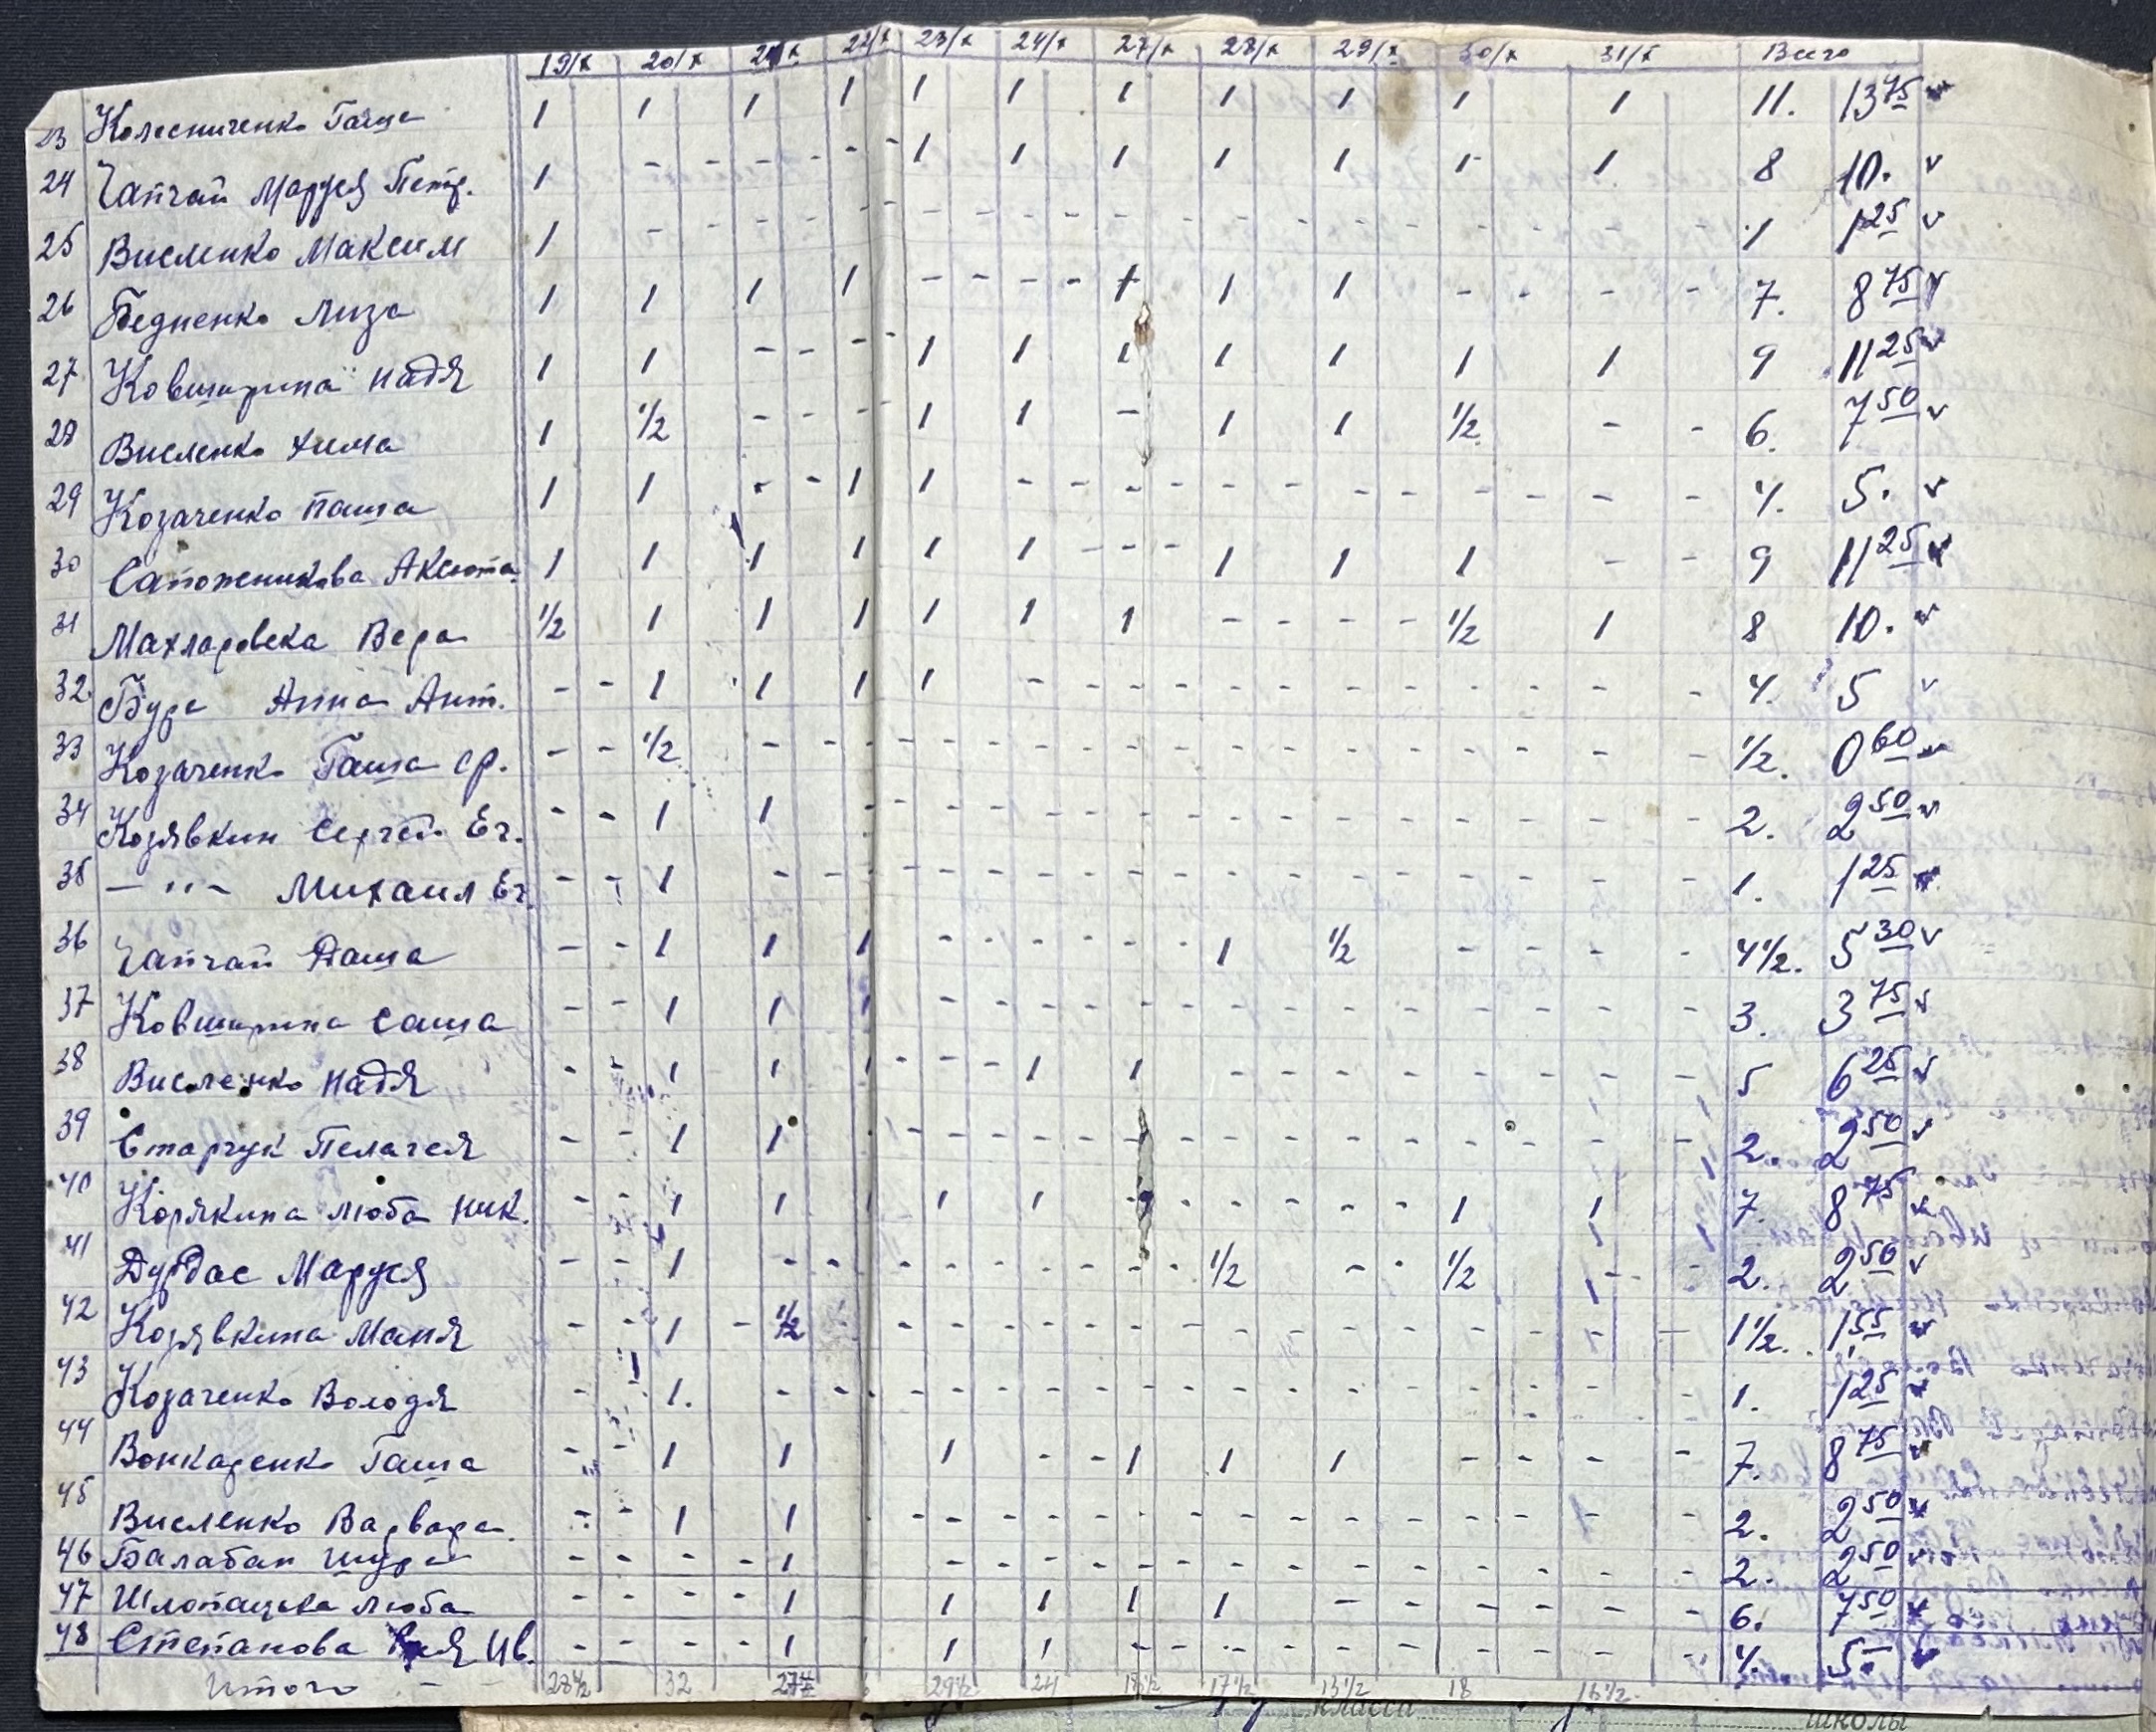 19/x 20/x 21/x 22/x 23/x 24/x 27/x 28/x 29/x 30/x 31/x Всего
23 Колесниченко Гаша 1 1 1 1 1 1 1 1 1 1 1 11. 13 75 v
24 Чапчай Маруся Петр. 1 - - - - - - 1 1 1 1 1 1 1 8 10. v
25 Висленко Максим 1 - - - - - - - - - - - - - - - - - - 1 1 25 v
26 Бедненко Лиза 1 1 1 1 - - - - 1 1 1 - - - - 7. 8 75 v
27 Ковширина Надя 1 1 - - - - 1 1 1 1 1 1 1 9 11 25 v
28 Висленко Хима 1 1/2 - - - - 1 1 - 1 1 1/2 - - 6. 7 50 v
29 Козаченко Паша 1 1 - - 1 1 - - - - - - - - - - - - 4. 5. v
30 Сапоженикова Аксюта 1 1 1 1 1 1 - - - 1 1 1 - - 9 11 25 v
31 Махларовска Вера 1/2 1 1 1 1 1 1 - - - - 1/2 1 8 10. v
32 Бура Анна Ант. - - 1 1 1 1 - - - - - - - - - - - - 4. 5 v
33 Козаченко Гаша ср. - - 1/2 - - - - - - - - - - - - - - - 1/2. 0 60 v
34 Козявкин Сергей Ег. - - 1 1 - - - - - - - - - - - - - - 2. 2 50 v
35 — " — Михаил Ег. - - 1 - - - - - - - - - - - - - - - 1. 1 25 v
36 Чапчай Даша - - 1 1 1 - - - - - - 1 1/2 - - - - 4 1/2. 5 30 v
37 Ковширина Саша - - 1 1 1 - - - - - - - - - - - - - 3. 3 75 v
38 Висленко Надя - - 1 1 1 - - - 1 1 - - - - - - - - 5 6 25 v
39 Старчук Пелагея - - 1 1 - - - - - - - - - - - - - - 2. 2 50 v
40 Корякина Люба Ник. - - 1 1 1 1 1 - - - - - - 1 1 7. 8 75 v
41 Дурдас Маруся - - 1 - - - - - - - - - 1/2 - - 1/2 - - 2. 2 50 v
42 Козявкина Маня - - 1 - 1/2 - - - - - - - - - - - - - 1 1/2. 1,55 v
43 Козаченко Володя - - 1. - - - - - - - - - - - - - - - 1. 1 25 v
44 Вонкаренко Гаша - - 1 1 1 - - 1 1 1 - - - - 7. 8 75 v
45 Висленко Варвара - - 1 1 - - - - - - - - - - - - - - 2. 2 50 v
46 Балабан Шура - - - - 1 - - - - - - - - - - - - - 2. 2 50 v
47 Люба - - - - 1 1 1 1 1 - - - - - - 6. 7 50 v
48 Степанова Ив. - - - - 1 1 1 - - - - - - - - - - 4. 5.- v
Итого - - 28 1/2 32 29 1/2 24 18 1/2 17 1/2 13 1/2 18 16 1/2
класса школы